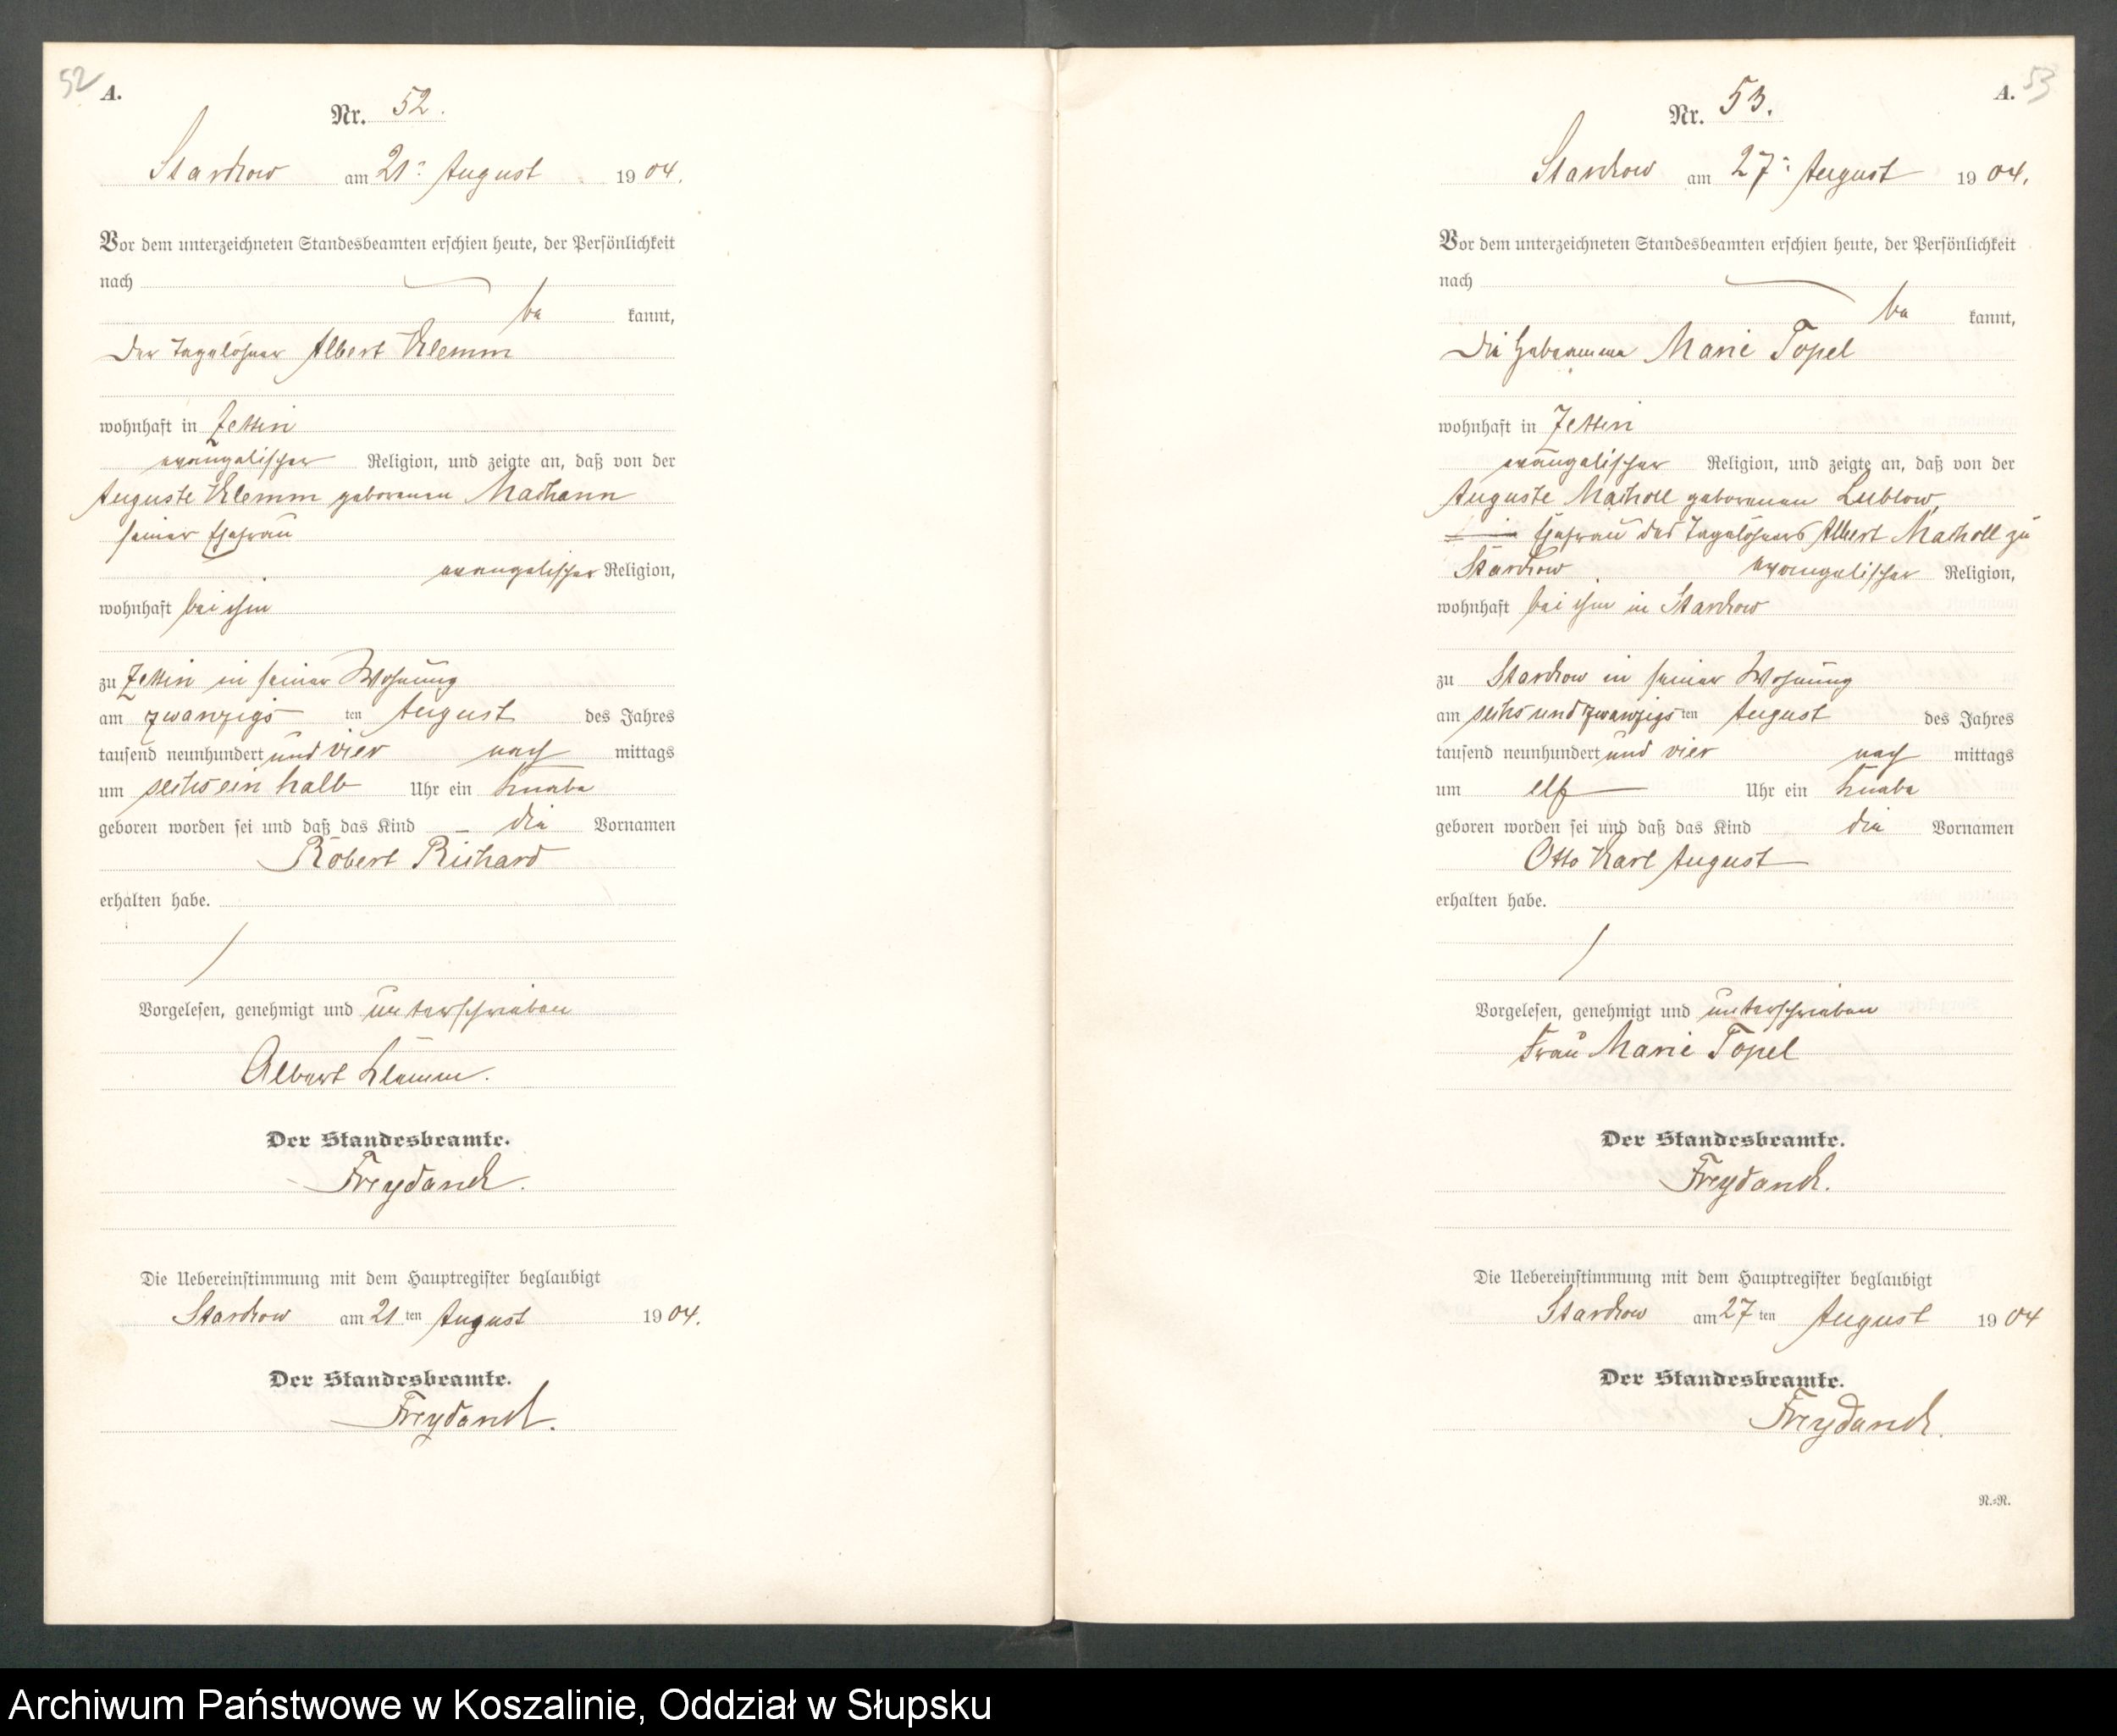 52
A.
Nr. 52.
Starckow am 21ᵗ August 1904.
Vor dem unterzeichneten Standesbeamten erschien heute, der Persönlichkeit
nach
be kannt,
der Tagelöhner Albert Klemm
wohnhaft in Zettin
evangelischer Religion, und zeigte an, daß von der
Auguste Klemm geborenen
seiner Ehefrau
evangelischer Religion,
wohnhaft bei ihm
zu Zettin in seiner Wohnung
am zwanzigsten August des Jahres
tausend neunhundert und vier nach mittags
um sechs ein halb Uhr ein Knabe
geboren worden sei und daß das Kind die Vornamen
Robert Richard
erhalten habe.
Vorgelesen, genehmigt und unterschrieben
Albert Klemm.
Der Standesbeamte.
Freydanck.
Die Uebereinstimmung mit dem Hauptregister beglaubigt
Starckow am 21ten August 1904.
Der Standesbeamte.
Freydanck.
A. 53
Nr. 53.
Starckow am 27ᵗ August 1904.
Vor dem unterzeichneten Standesbeamten erschien heute, der Persönlichkeit
nach
be kannt,
die Hebeamme Marie Topel
wohnhaft in Zettin
evangelischer Religion, und zeigte an, daß von der
Auguste Macholl geborenen Lublow,
Ehefrau des Tagelöhners Albert Macholl zu
Starckow evangelischer Religion,
wohnhaft bei ihm in Starckow
zu Starckow in seiner Wohnung
am sechsundzwanzigsten August des Jahres
tausend neunhundert und vier nach mittags
um elf Uhr ein Knabe
geboren worden sei und daß das Kind die Vornamen
Otto Karl August
erhalten habe.
Vorgelesen, genehmigt und unterschrieben
Frau Marie Topel
Der Standesbeamte.
Freydanck.
Die Uebereinstimmung mit dem Hauptregister beglaubigt
Starckow am 27ten August 1904
Der Standesbeamte.
Freydanck.
N.=R.
Archiwum Państwowe w Koszalinie, Oddział w Słupsku